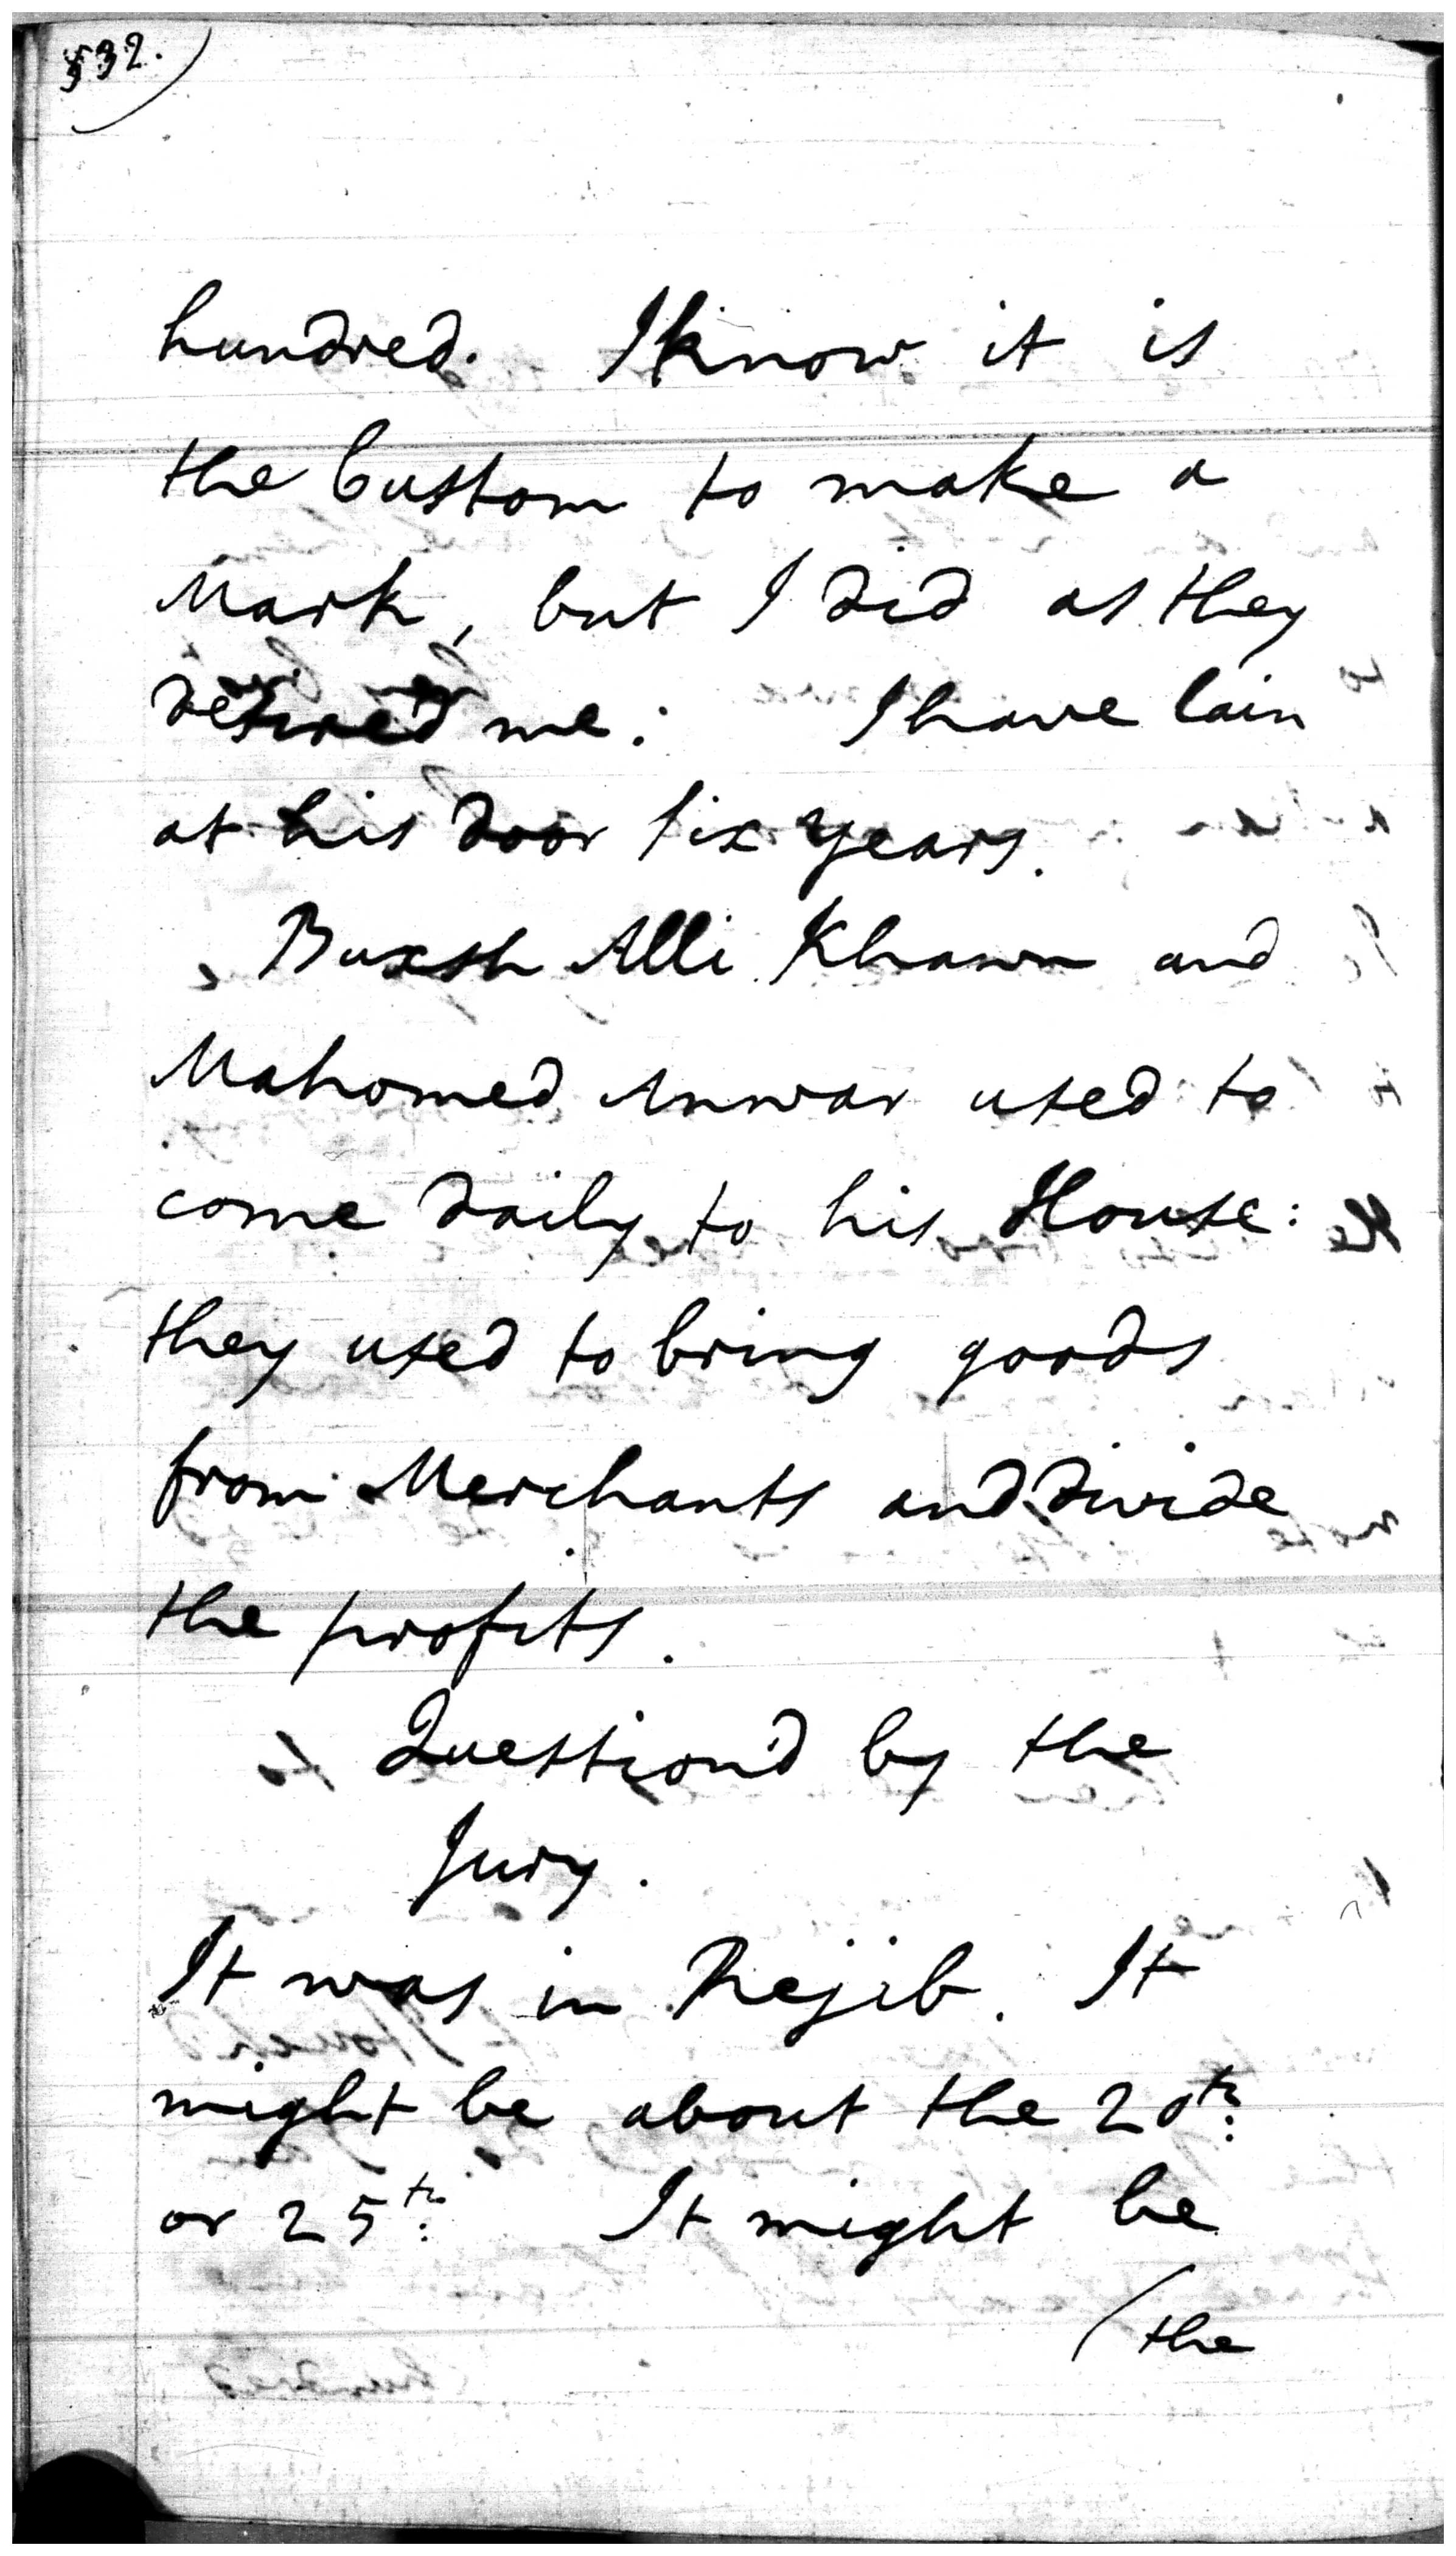 532.)
hundred. I know it is
the Custom to make a
Mark, but I did as they
desired me: I have lain
at his door six years.
Buxsh Alli Khawn and
Mahomed Anwar used to
come daily to his House:
they used to bring goods
from Merchants and divide
the profits.
Question'd by the
Jury.
It was in Rejib. It
might be about the 20th.
or 25th. It might be
(the